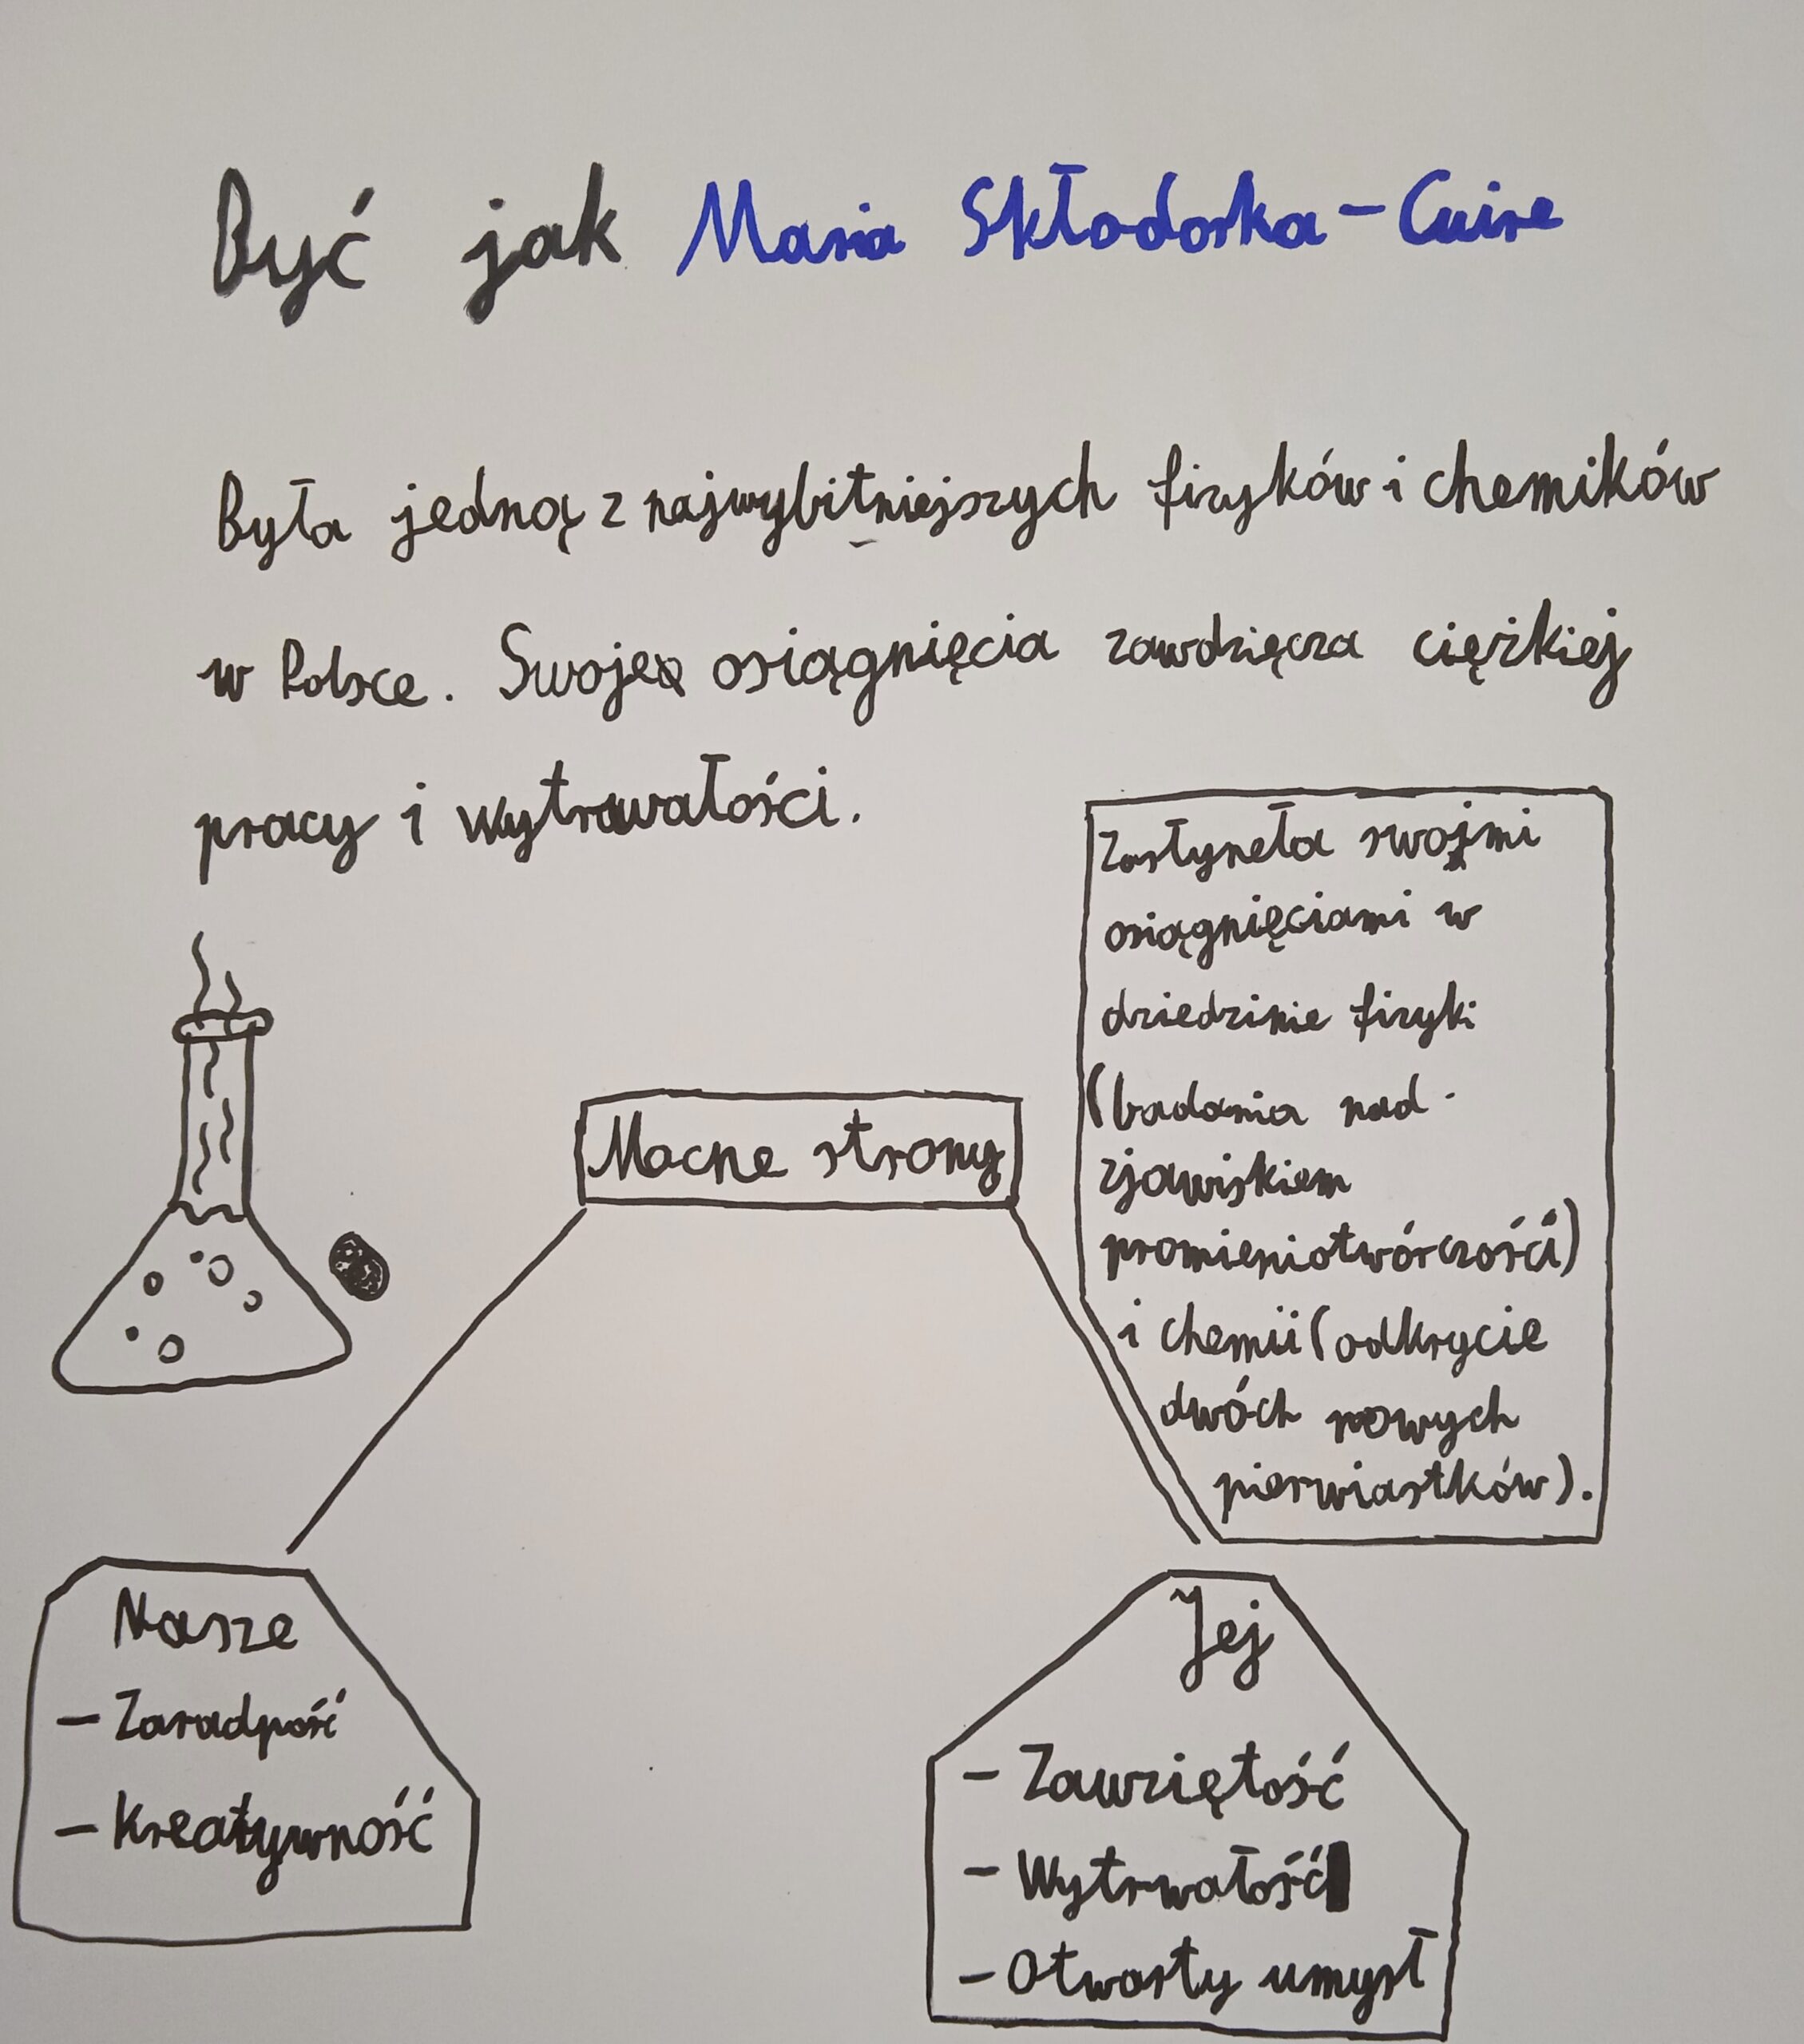 Być jak Maria Skłodorka-Cuire
Była jedną z najwybitniejszych fizyków i chemików
w Polsce. Swoje osiągnięcia zawdzięcza ciężkiej
pracy i wytrawałości.
Zasłyneła swojmi
osiągnięciami w
dziedzinie fizyki
(badania nad
zjawiskiem
promieniotwórczości)
i chemii (odkrycie
dwóch nowych
pierwiastków).
Mocne strony
Nasze
- Zaradność
- Kreatywność
Jej
- Zawziętość
- Wytrwałość
- Otwarty umysł